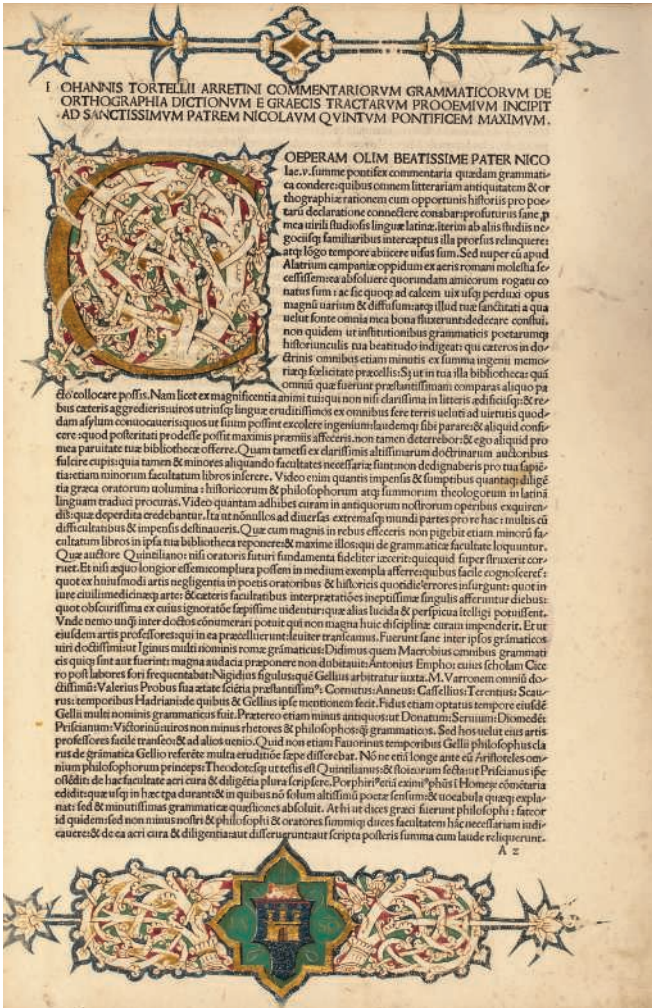 IOHANNIS TORTELLII ARRETINI COMMENTARIORVM GRAMMATICORVM DE
ORTHOGRAPHIA DICTIONVM E GRAECIS TRACTARVM PROOEMIVM INCIPIT
AD SANCTISSIMVM PATREM NICOLAVM QVINTVM PONTIFICEM MAXIMVM.
COEPERAM OLIM BEATISSIME PATER NICO
lae.v. summe pontifex commentaria quædam grammati-
ca condere: quibus omnem litterariam antiquitatem & or
thographiæ rationem cum opportunis historiis pro poe-
tarū declaratione connectere conabar: profuturus sane ꝓ
mea uirili studiosis linguæ latinæ. iterim ab aliis studiis ne-
gociisq; familiaribus interceptus illa prorsus relinquere:
atq; lōgo tempore abiicere uisus sum. Sed nuper cū apud
Alatrium campaniæ oppidum ex aeris romani molestia se-
cessissem: ea absoluere quorundam amicorum rogatu co
natus sum: ac sic quoq; ad calcem uix usq; perduxi opus
magnū uarium & diffusum: atq; illud tuæ sanctitati a qua
uelut fonte omnia mea bona fluxerunt: dedecare constui.
non quidem ut institutionibus grammaticis poetarumq;
historiunculis tua beatitudo indigeat: qui cæteros in do-
ctrinis omnibus etiam minutis ex summa ingenii memo-
riæq; fœlicitate præcellis: Sʒ ut in tua illa bibliotheca: quā
omniū quæ fuerunt præstantissimam comparas aliquo pa
cto collocare possis. Nam licet ex magnificentia animi tui: qui non nisi clarissima in litteris ædificiisq; & re-
bus cæteris aggredieris: uiros utriusq; linguæ eruditissimos ex omnibus fere terris ueluti ad uirtutis quod-
dam asylum conuocaueris: quos ut suum possint excolere ingenium: laudemq; sibi parare: & aliquid confi-
cere: quod posteritati prodesse possit maximis præmiis affeceris. non tamen deterrebor: & ego aliquid pro
mea paruitate tuæ bibliothecæ offerre. Quam tametsi ex clarissimis altissimarum doctrinarum auctoribus
fulcire cupis: quia tamen & minores aliquando facultates necessariæ sunt: non dedignaberis pro tua sapiē-
tia: etiam minorum facultatum libros inserere. Video enim quantis impensis & sumptibus quantaq; diligē
tia græca oratorum uolumina: historicorum & philosophorum atq; summorum theologorum in latinā
linguam traduci procuras. Video quantam adhibes curam in antiquorum nostrorum operibus exquiren-
dis: quæ deperdita credebantur. Ita ut nōnullos ad diuersas extremasq; mundi partes pro re hac: multis cū
difficultatibus & impensis destinaueris. Quæ cum magnis in rebus effeceris non pigebit etiam minorū fa-
cultatum libros in ipsa tua bibliotheca reponere: & maxime illos: qui de grammaticæ facultate loquuntur.
Quæ auctore Quintiliano: nisi oratoris futuri fundamenta fideliter iæcerit: quicquid superstruxerit cor-
ruet. Et nisi æquo longior essem: complura possem in medium exempla afferre: quibus facile cognosceret̄:
quot ex huiusmodi artis negligentia in poetis oratoribus & historicis quotidie errores insurgunt: quot in
iure ciuili medicinæq; arte: & cæteris facultatibus interptātiões ineptissimæ singulis afferuntur diebus:
quot obscurissima ex cuius ignoratōe sæpissime uidentur: quæ alias lucida & perspicua itelligi potuissent.
Vnde nemo unq̄ inter doctos cōnumerari potuit qui non magna huic disciplinæ curam impenderit. Et ut
eiusdem artis professores: qui in ea præcelluerunt: leuiter transeamus. Fuerunt sane inter ipsos grāmaticos
uiri doctissimi: ut Iginus multi nominis romæ grāmaticus: Didimus quem Macrobius omnibus grammati
cis quiq; sint aut fuerint: magna audacia præponere non dubitauit: Antonius Empho: cuius scholam Cice
ro post labores fori frequentabat: Nigidius figulus: quē Gellius arbitratur iuxta .M. Varronem omniū do-
ctissimū: Valerius Probus sua ætate sciētia præstantissimꝰ: Cornutus: Anneus: Caſſellius: Terentius: Scau-
rus: temporibus Hadriani: de quibus & Gellius ipse mentionem fecit. Fidus etiam optatus tempore eiusdē
Gellii multi nominis grammaticus fuit. Prætereo etiam minus antiquos: ut Donatum: Seruium: Diomedē:
Priscianum: Victorinū: uiros non minus rhetores & philosophos: q̄ grammaticos. Sed hos uelut eius artis
professores facile transeo: & ad alios uenio. Quid non etiam Fauorinus temporibus Gellii philosophus cla
rus de grāmatica Gellio referēte multa eruditiōe sæpe disserebat. Nōne etiā longe ante eū Aristoteles om-
nium philosophorum princeps: Theodotesq; ut testis est Quintilianus: & stoicorum secta: ut Priscianus ipē
ostēdit de hac facultate acri cura & diligētia plura scripsere. Porphiriꝰ etiā eximiꝰ phūs ī Homeje cōmētaria
edidit: quæ usq; in hæc tpa durant: & in quibus nō solum altissimū poetæ sensum: & uocabula quæq; expla-
nat: sed & minutissimas grammaticæ quæstiones absoluit. At hi ut dices græci fuerunt philosophi: fateor
id quidem: sed non minus nostri & philosophi & oratores summiq; duces facultatem hāc necessariam iudi-
cauere: & de ea acri cura & diligentia: aut disseruerunt: aut scripta posteris summa cum laude reliquerunt.
A 2